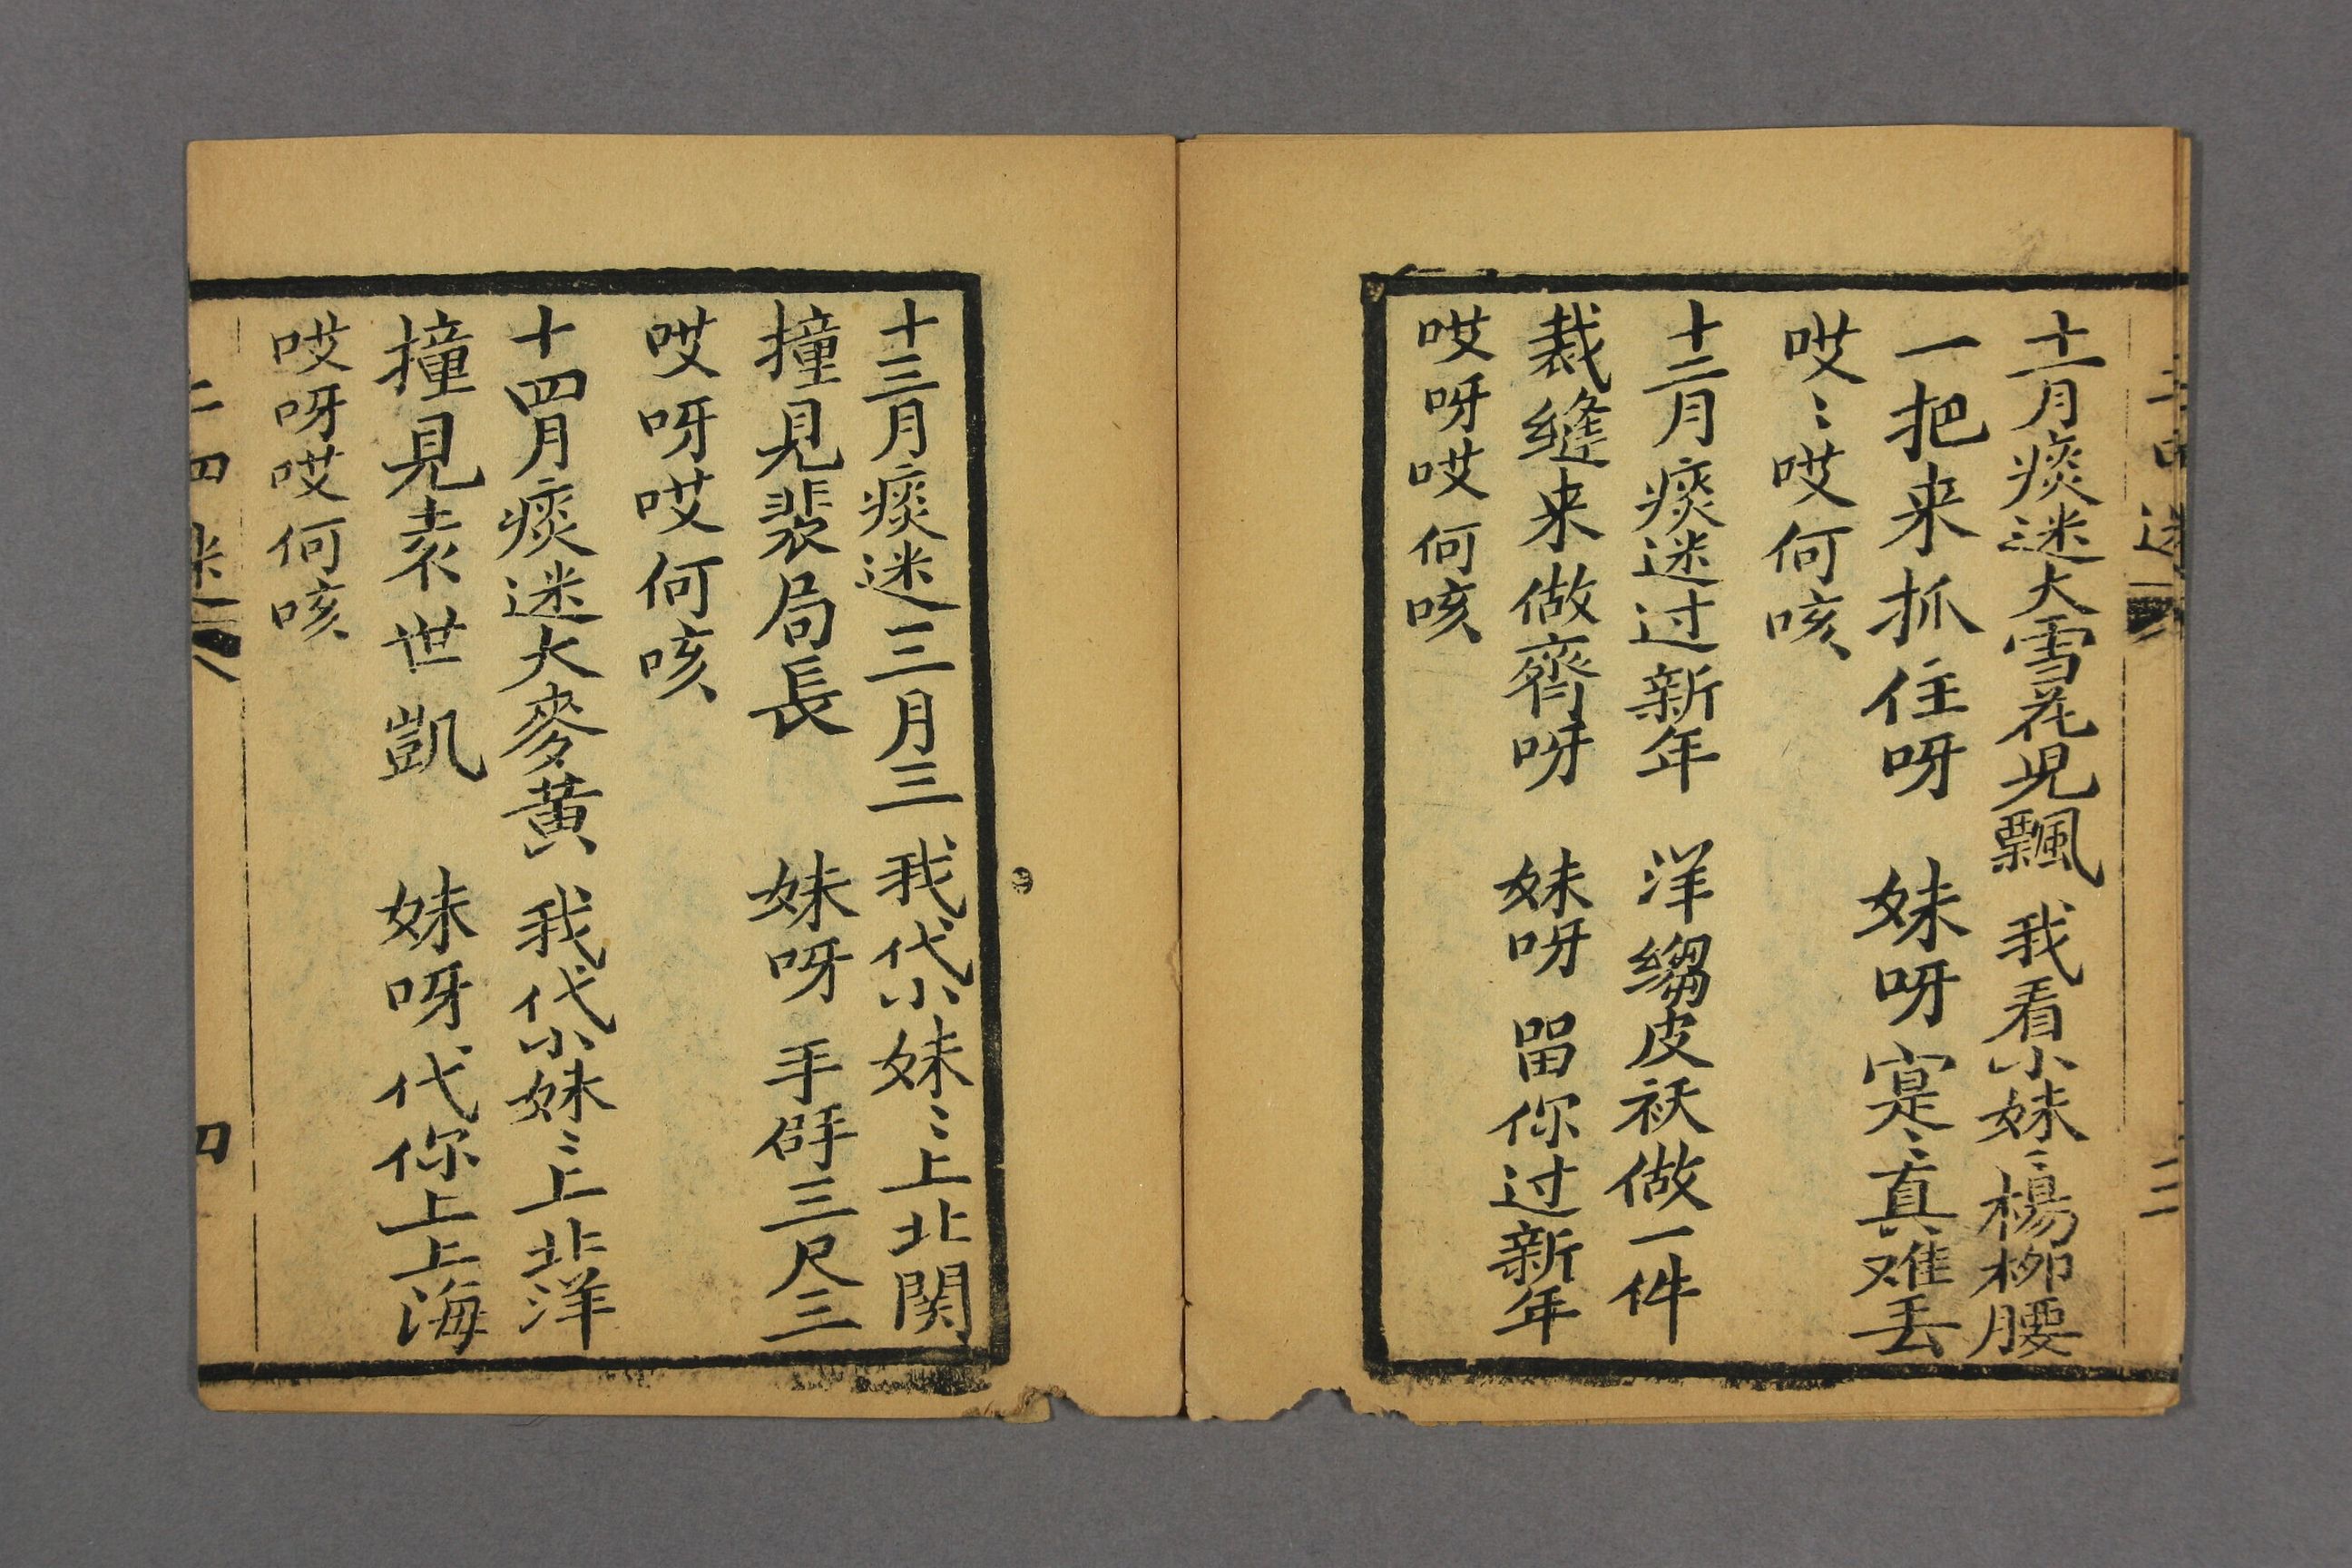 十一月痰迷大雪花児飄 我看小妹〻楊柳腰
一把来抓住呀 妹呀寔〻真难丢
哎〻哎何咳
十二月痰迷过新年 洋縐皮袄做一件
裁缝来做齊呀 妹呀畄你过新年
哎呀哎何咳
十三月痰迷三月三 我代小妹〻上北関
撞見裴局長 妹呀手㢡三尺三
哎呀哎何咳
十四月痰迷大麥黄 我代小妹〻上北洋
撞見袁世凱 妹呀代你上上海
哎呀哎何咳